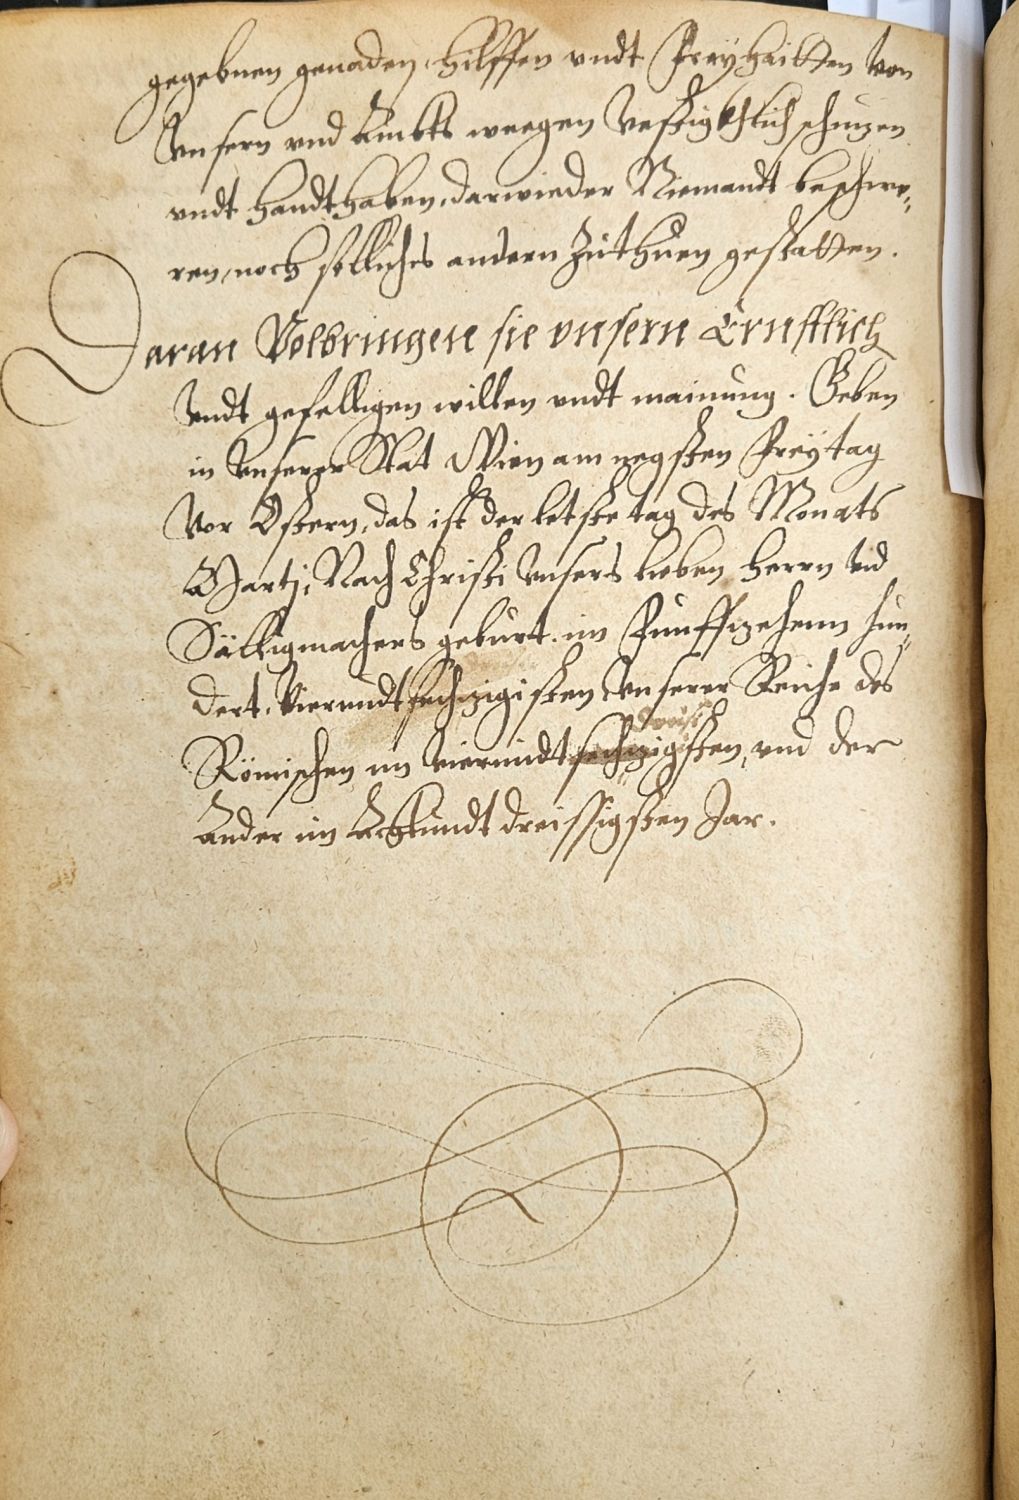 gegebnen genaden, hilffen vndt Freyhaitten von
Vnsern vnd Ambts weegen Vestigkhlich schuzen
vndt handthaben, darwieder Niemandt beschwe„
ren, noch solliches andern Zuthuen gestatten.
Daran Volbringen sie vnsern Ernstlich
Vndt gefelligen willen vndt mainung. Geben
in Vnserer Stat Wien am negsten Freytag
Vor Ostern, das ist der letste tag des Monats
Martj, Nach Christi Vnsers lieben Herrn vnd
Sälligmachers geburt. im Funffzehenn hun„
dert, Vierundtsechzigisten Vnserer Reiche des
dreissi
Römischen im Vierundtsechzigsten, vnd der
Ander im Achtundtdreissigsten Jar.